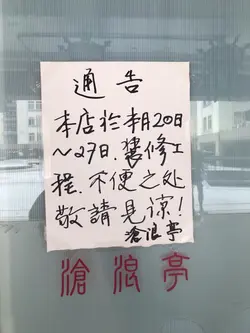 通告
本店於本月20日
～27日.装修工
程.不便之处
敬請見谅！
滄浪亭
滄浪亭